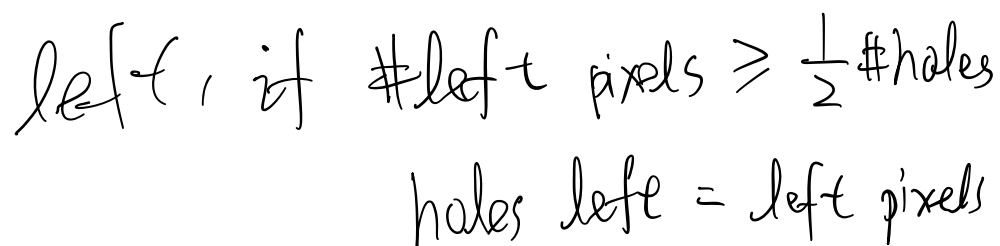 left, if #left pixels ≥ 1/2 #holes
holes left = left pixels